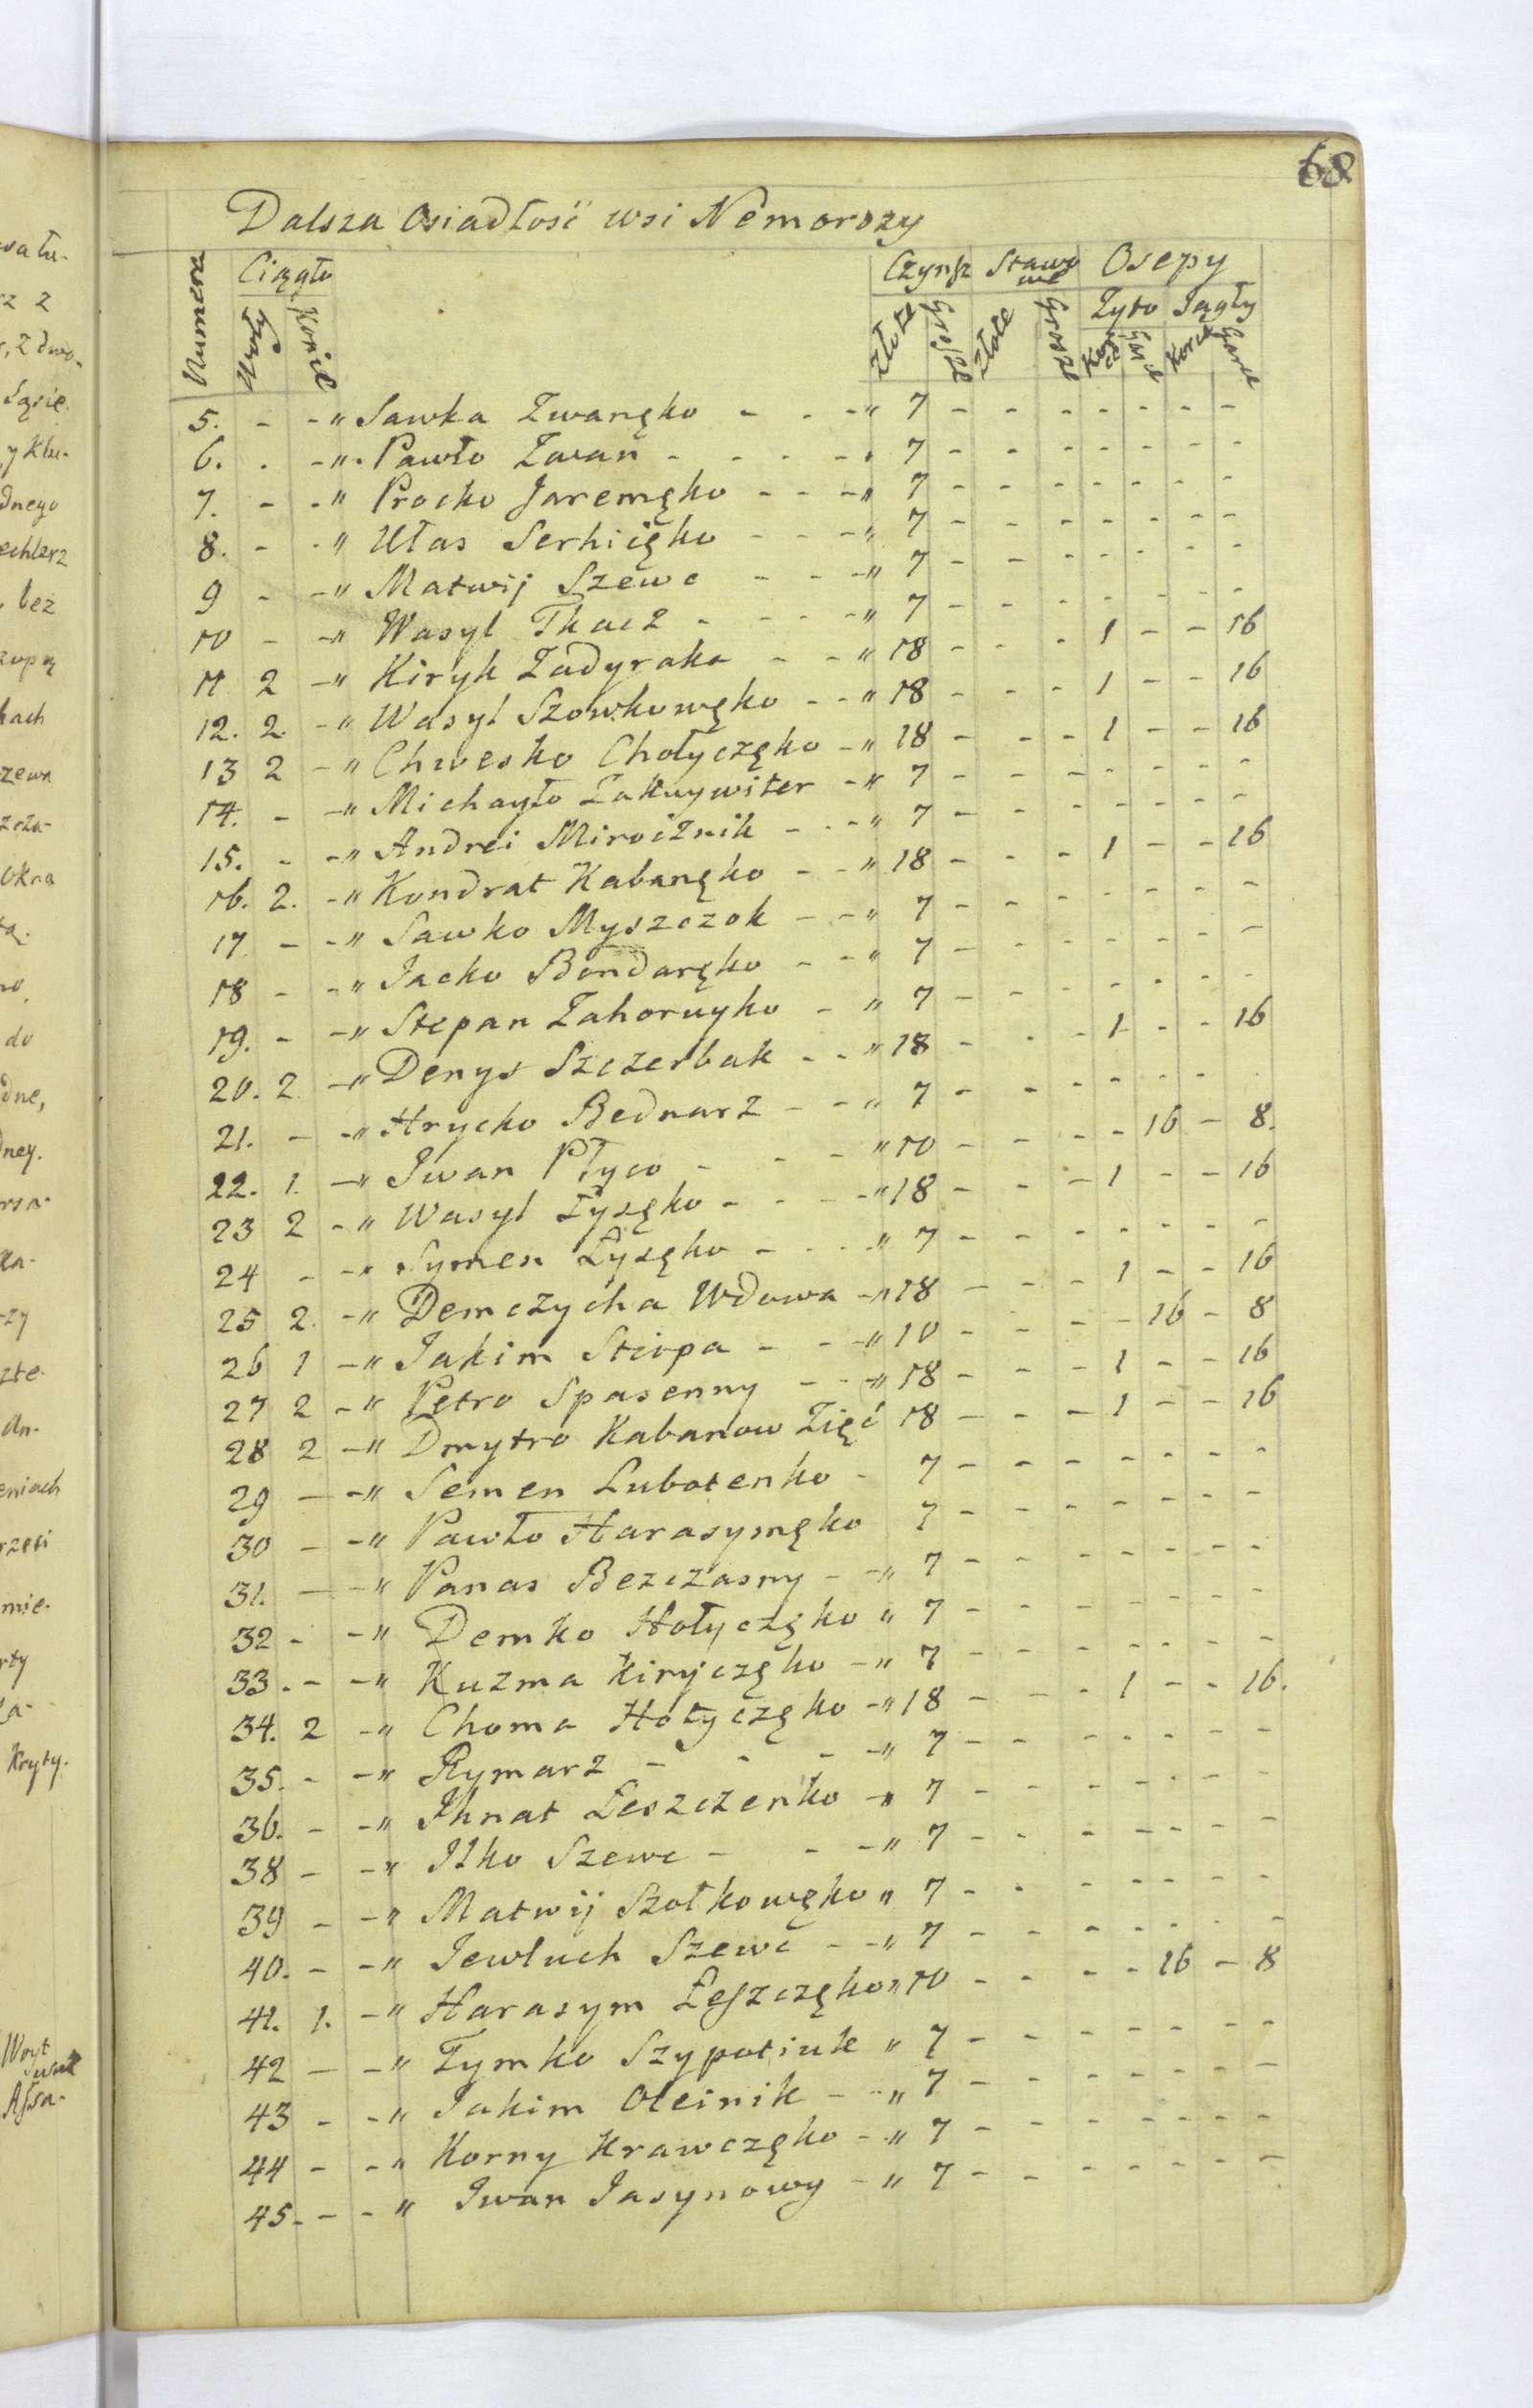 68
Dalsza Osiadłość wsi Nemorozy
Numera Ciągło Czynsz Stawowe Osepy
Woły Konie Złote Grosze Złote Grosze Żyto Jagły
Korce Garce Korce Garce
5. - - " Sawka Zwanęko - - - " 7 - - - - - - -
6. . - " Pawło Zwan - - - - " 7 - - - - - - -
7. - - " Procko Jaremęko - - - " 7 - - - - - - -
8. - - " Ułas Serhięko - - - " 7 - - - - - - -
9 - - " Matwij Szewc - - - " 7 - - - - - - -
10 - - " Wasyl Tkacz - - - - " 7 - - - - - - -
11 2 - " Kiryk Zadyraka - - " 18 - - - 1 - - 16
12. 2. - " Wasyl Szowkowęko - - " 18 - - - 1 - - 16
13 2 - " Chwesko Chołyczęko - " 18 - - - 1 - - 16
14. - - " Michayło Zakuywiter - " 7 - - - - - - -
15. - - " Andrei Mirocznik - - - " 7 - - - - - - -
16. 2. - " Kondrat Kabanęko - - " 18 - - - 1 - - 16
17 - - " Sawko Myszczok - - - " 7 - - - - - - -
18 - - " Jacko Bondaręko - - - " 7 - - - - - - -
19. - - " Stepan Zahoruyko - " 7 - - - - - - -
20. 2 - " Denys Szczerbak - - " 18 - - - 1 - - 16
21. - - " Hrycko Bednarz - - - " 7 - - - - - -
22. 1. - " Iwan Płyco - - - " 10 - - - - 16 - 8.
23 2 - " Wasyl Łysęko - - - - " 18 - - - 1 - - 16
24 - - " Symen Łysęko - - - " 7 - - - - - - -
25 2. - " Demczycha Wdowa - " 18 - - - 1 - - 16
26 1 - " Jakim Stiopa - - - " 10 - - - - 16 - 8
27 2 - " Petro Spasenny - - - " 18 - - - 1 - - 16
28 2 - " Dmytro Kabanow Zięć 18 - - - 1 - - 16
29 - - " Semen Lubotenko - 7 - - - - - - -
30 - - " Pawło Harasymęko 7 - - - - - - -
31. - - " Panas Bezczasny - - " 7 - - - - - - -
32 - - " Demko Hołyczęko " 7 - - - - - - -
33. - - " Kuzma Kiryjczęko - " 7 - - - - - - -
34. 2 - " Choma Hołyczęko - " 18 - - - 1 - - 16.
35. - - " Rymarz - - - - " 7 - - - - - - -
36. - - " Ihnat Łeszczenko - " 7 - - - - - - -
38 - - " Iżko Szewc - - - " 7 - - - - - - -
39 - - " Matwij Szołkowęko " 7 - - - - - - -
40. - - " Jewtuch Szewc - - " 7 - - - - - - -
41. 1. - " Harasym Łeszczęko " 10 - - - - 16 - 8
42 - - " Tymko Szypotiuk " 7 - - - - - - -
43 - - " Jakim Oleinik - - " 7 - - - - - - -
44 - - " Korny Krawczęko - " 7 - - - - - - -
45. - - " Iwan Jasynowy - " 7 - - - - - - -